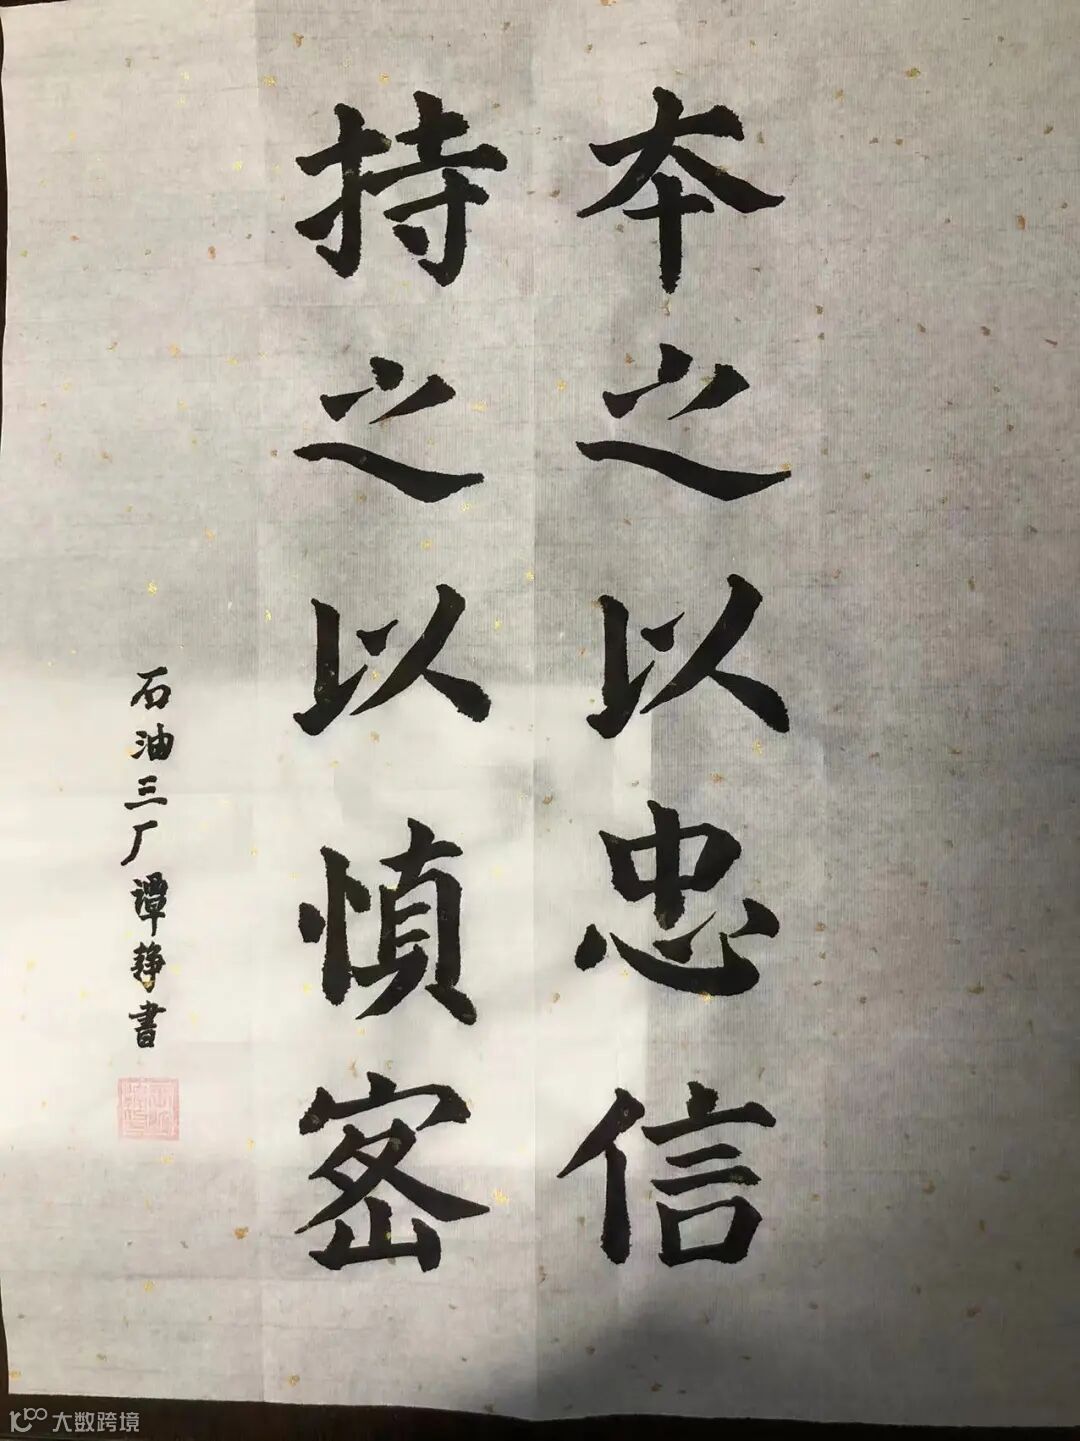 本之以忠信
持之以慎密
石油三厂谭静書
大数跨境